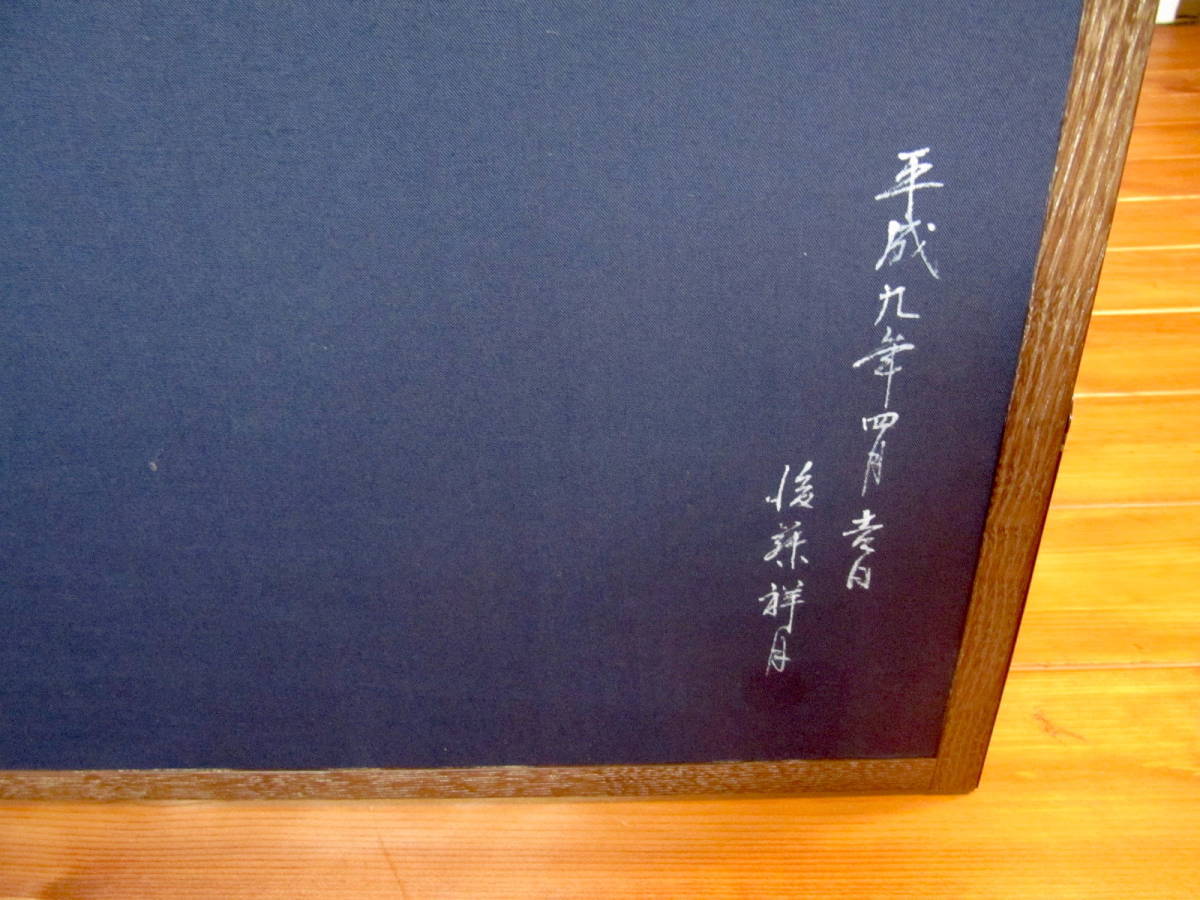 平成九年四月吉日
後藤祥月